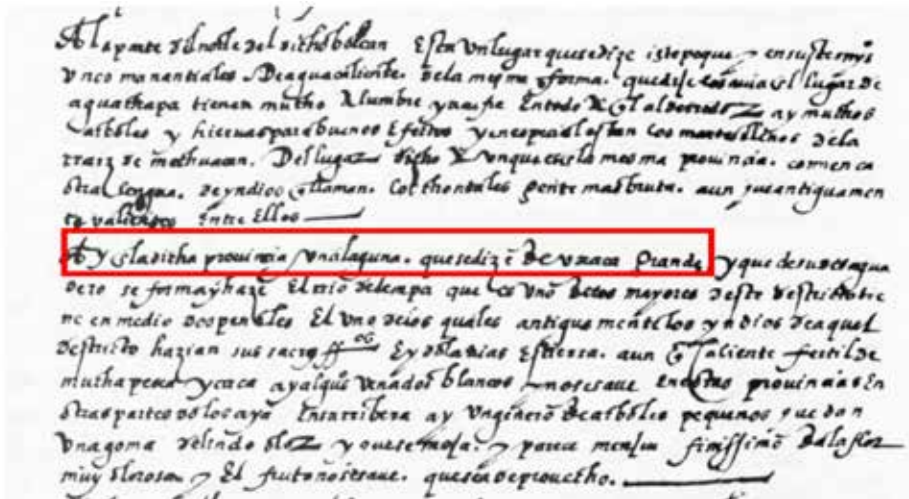 A la parte del norte del dicho bolcan Esta un lugar que se dize istepeque y en sus terminos
unos manantiales De agua caliente. de la mesma forma. que dixe
aguachapa tienen mucho Alumbre y açufre En todo ay muchos
arboles y hieruas para buenos Efetos y en especial estan los dela
raiz de mechuacan. Del lugar dicho la mesma prouincia. comença
otra lengua. de yndios q llaman. los chontales gente mas bruta. aun que antiguamen
te valientes Entre Ellos
Ay la dicha prouincia una laguna. que se dize De uxaca Grande y que de su desagua
dero se forma y haze El rio de lempa que es uno delos mayores deste destrito tie
ne en medio dos peñoles El uno delos quales antiguamente los yndios de aquel
destricto hazian sus sacrifficios E ydolatrias Es tierra. aun q caliente fertil de
mucha pesca y caça ay algunos venados blancos no se saue En otras prouincias En
otras partes los aya En su ribera ay un genero de arboles pequeños que dan
una goma de lindo olor y parece menjui finissimo Da la flor
muy olorosa y El fruto no se saue. que sea de prouecho.